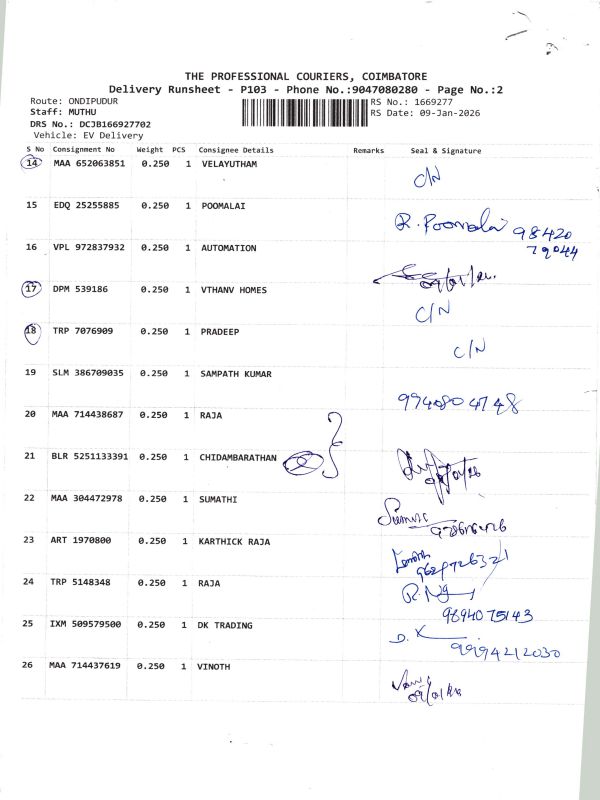 THE PROFESSIONAL COURIERS, COIMBATORE
Delivery Runsheet - P103 - Phone No.:9047080280 - Page No.:2
Route: ONDIPUDUR
RS No.: 1669277
Staff: MUTHU
RS Date: 09-Jan-2026
DRS No.: DCJB166927702
Vehicle: EV Delivery
S No Consignment No Weight PCS Consignee Details Remarks Seal & Signature
14 MAA 652063851 0.250 1 VELAYUTHAM
C/N
15 EDQ 25255885 0.250 1 POOMALAI
R. Poomalai 98420
79044
16 VPL 972837932 0.250 1 AUTOMATION
09/01/26
17 DPM 539186 0.250 1 VTHANV HOMES
C/N
18 TRP 7076909 0.250 1 PRADEEP
C/N
19 SLM 386709035 0.250 1 SAMPATH KUMAR
9940804748
20 MAA 714438687 0.250 1 RAJA
21 BLR 5251133391 0.250 1 CHIDAMBARATHAN 2
22 MAA 304472978 0.250 1 SUMATHI
23 ART 1970800 0.250 1 KARTHICK RAJA
24 TRP 5148348 0.250 1 RAJA
9894075143
25 IXM 509579500 0.250 1 DK TRADING
D. K
99994212030
26 MAA 714437619 0.250 1 VINOTH
09/01/26